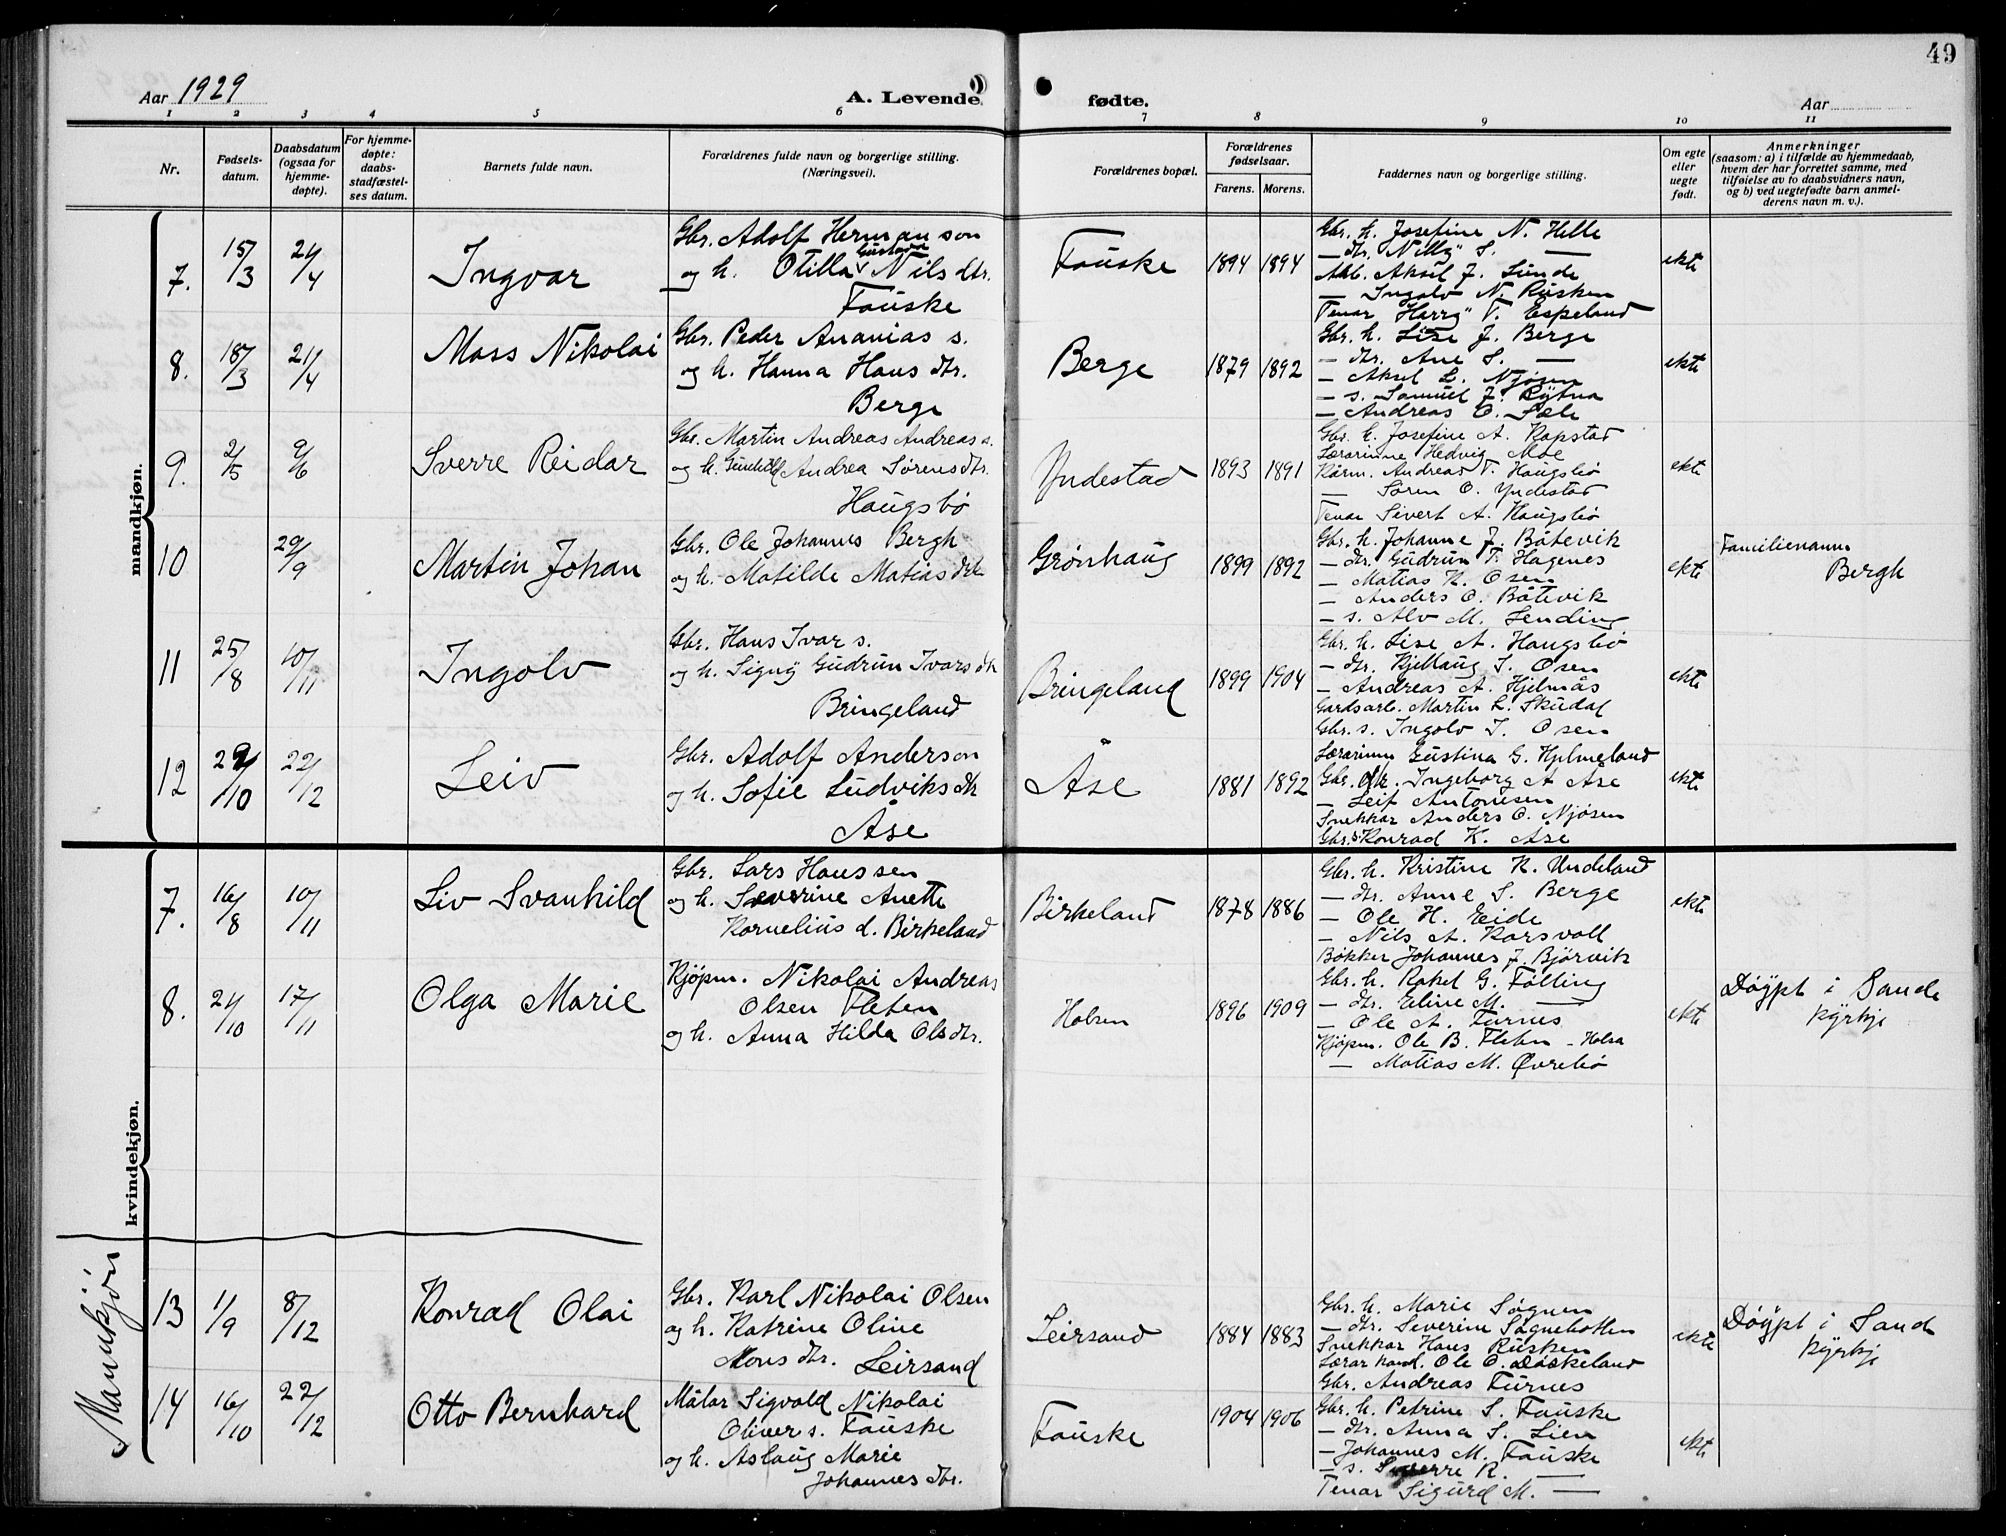 49
Aar 1929
A. Levende fødte.
Aar
1 2 3 4 5 6 7 8 9 10 11
Nr.
Fødsels-
datum.
Daabsdatum
(ogsaa for
hjemme-
døpte).
For hjemme-
døpte:
daabs-
stadfæstel-
ses datum.
Barnets fulde navn.
Forældrenes fulde navn og borgerlige stilling.
(Næringsvei).
Forældrenes bopæl.
Forældrenes
fødselsaar.
Farens. Morens.
Faddernes navn og borgerlige stilling.
Om egte
eller
uegte
født.
Anmerkninger
(saasom: a) i tilfælde av hjemmedaab,
hvem der har forrettet samme, med
tilføielse av to daabsvidners navn,
og b) ved uegtefødte barn anmel-
derens navn m. v.).
mandkjøn.
7. 15/3 21/4 Ingvar
Gbr. Adolf Hermanson
og h. Otilla Gustava Nilsdtr.
Fauske
Fauske 1894 1894
Gbr. h. Josefine N. Helle
— dtr. Nilly S. —
Arb. Aksel J. Sunde
— Ingolv N. Rusken
Tenar Harry T. Espeland
ekte
8. 18/3 21/4 Mass Nikolai
Gbr. Peder Ananias s.
og h. Hanna Hans dtr.
Berge
Berge 1879 1892
Gbr. h. Lise J. Berge
— dtr. Ane S. —
— Aksel L. Njøsen
— s. Samuel J.
— Andreas O. Sæle
ekte
9. 2/5 9/6 Sverre Reidar
Gbr. Martin Andreas Andreas s.
og h. Gunhild Andrea Sørensdtr.
Haugsbø
Yndestad 1893 1891
Gbr. h. Josefine A. Rapstad
Lærarinne Hedvig Moe
Kårm. Andreas T. Haugsbø
— Søren O. Yndestad
Tenar Sivert A. Haugsbø
ekte
10 29/9 Martin Johan
Gbr. Ole Johannes Bergh
og h. Matilde Matias dtr
Grønhaug 1899 1892
Gbr. h. Johanne J. Båtevik
— dtr. Gudrun T. Hagenes
— Matias R. Osen
— Anders O. Båtevik
— s. Alv M. Sending
ekte
Familienamn
Bergh
11 25/8 10/11 Ingolv
Gbr. Hans Ivar s.
og h. Signy Gudrun Ivars dtr
Bringeland
Bringeland 1899 1904
Gbr. h. Lise A. Haugsbø
— dtr. Kjellaug I. Osen
— Andreas A. Hjelmås
Gardsarb. Martin L. Skudal
Gbr. s. Ingolv I. Osen
ekte
12 29/10 22/12 Leiv
Gbr. Adolf Anderson
og h. Sofie Ludviks dtr
Åse
Åse 1881 1892
Lærarinne Gustina G. Hjelmeland
Gbr. dtr. Ingeborg A Åse
— Leif Antonisen
Snekkar Anders O. Njøsen
Gbr. s. Konrad K. Åse
ekte
kvindekjøn.
7. 16/8 10/11 Liv Svanhild
Gbr. Lars Hanssen
og h. Severine Anette
Kornelius d. Birkeland
Birkeland 1878 1886
Gbr. h. Kristine N. Undeland
— dtr. Anne S. Berge
— Ole H. Eide
— Nils A. Karsvoll
Bøkker Johannes J. Bjørvik
ekte
8. 21/10 17/11 Olga Marie
Kjöpm. Nikolai Andreas
Olsen Fleten
og h. Anna Hilda Olsdtr.
Holsen 1896 1909
Gbr. h. Rakel G. Fölling
— dtr. Eline M. —
— Ole A. Furnes
Kjöpm. Ole B. Fleten - Holsa
— Matias M. Øvrebø
ekte
Döypt i Sande
kyrkje
Mannkjøn
13 1/9 8/12 Konrad Olai
Gbr. Karl Nikolai Olsen
og h. Katrine Oline
Mons dtr. Leirsand
Leirsand 1884 1883
Gbr. h. Marie Søgnen
— dtr. Severine Søgnebotten
Snekkar Hans Rusken
Lærar kand. Ole O. Dåskeland
Gbr. Andreas Furnes
ekte
Döypt i Sande
kyrkje
14 16/10 22/12 Otto Bernhard
Målar Sigvald Nikolai
Oliver s. Fauske
og h. Aslaug Marie
Johannes dtr.
Fauske 1904 1906
Gbr. h. Petrine S. Fauske
— dtr. Anna S. Lien
— Johannes M. Fauske
— s. Sverre R. —
Tenar Sigurd M. —
ekte